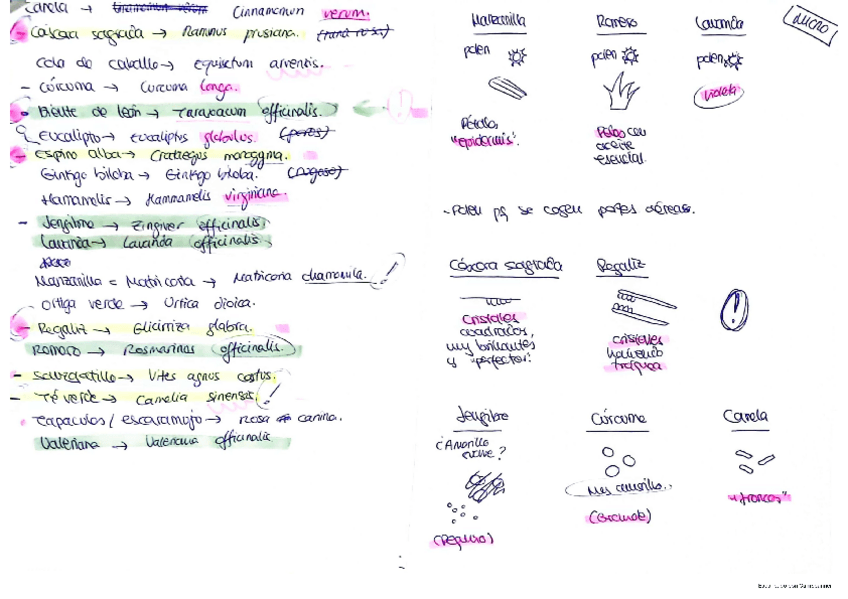 Canela → Cinnamomum verum.
Cáscara sagrada → Ramnus prusiana.
Cola de caballo → equisetum arvensis.
- Cúrcuma → Curcuma longa.
Diente de león → Taraxacum officinalis.
Eucalipto → eucaliptus globulus.
Espino albar → Crataegus monoggina.
Ginkgo biloba → Ginkgo biloba.
Hamamelis → Hammamelis virginiana.
- Jengibre → Zingiver officinalis
Lavanda → Lavanda officinalis
Manzanilla = Matricaria → Matricaria chamomula. !
- Ortiga verde → Urtica dioica.
- Regaliz → Glicirriza glabra.
Romero → Rosmarinus officinalis.
- Sauzgatillo → Vites agnus castus.
- Té verde → Camelia sinensis. !
Tapaculos / escaramujo → Rosa canina.
Valeriana → Valeriana officinalis
MICRO
Manzanilla Romero Lavanda
polen polen polen
violeta
Pétalos, Pelos con
"epidermis". aceite
esencial.
- Polen pq se cogen partes aéreas.
Cáscara sagrada Regaliz
!
Cristales cristales
cuadrados, haciendo
muy brillantes tráquea
y "perfectos".
Jengibre Cúrcuma Canela
¿Amarillo suave?
Más amarillo..
"troncos"
(Grande)
(Pequeño)